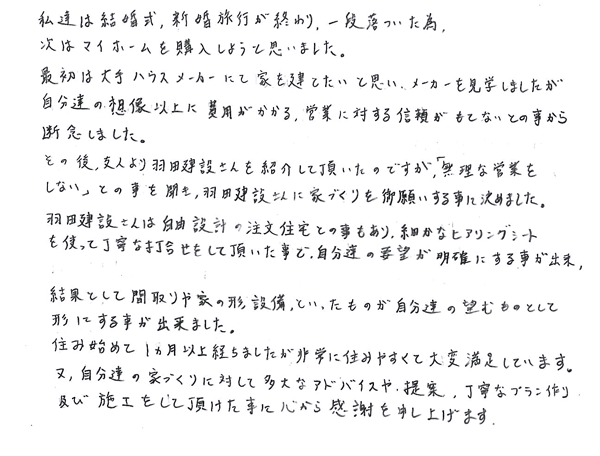 私達は結婚式、新婚旅行が終わり、一段落ついた為、
次はマイホームを購入しようと思いました。
最初は大手ハウスメーカーにて家を建てたいと思い、メーカーを見学しましたが
自分達の想像以上に費用がかかる、営業に対する信頼がもてないとの事から
断念しました。
その後、友人より羽田建設さんを紹介して頂いたのですが、「無理な営業を
しない」との事を聞き、羽田建設さんに家づくりを御願いする事に決めました。
羽田建設さんは自由設計の注文住宅との事もあり、細かなヒアリングシート
を使って丁寧な打合せをして頂いた事で、自分達の要望が明確にする事が出来、
結果として間取りや家の形、設備、といったものが自分達の望むものとして
形にする事が出来ました。
住み始めて1ヵ月以上経ちましたが非常に住みやすくて大変満足しています。
又、自分達の家づくりに対して多大なアドバイスや、提案、丁寧なプラン作り
及び施工をして頂けた事に心から感謝を申し上げます。